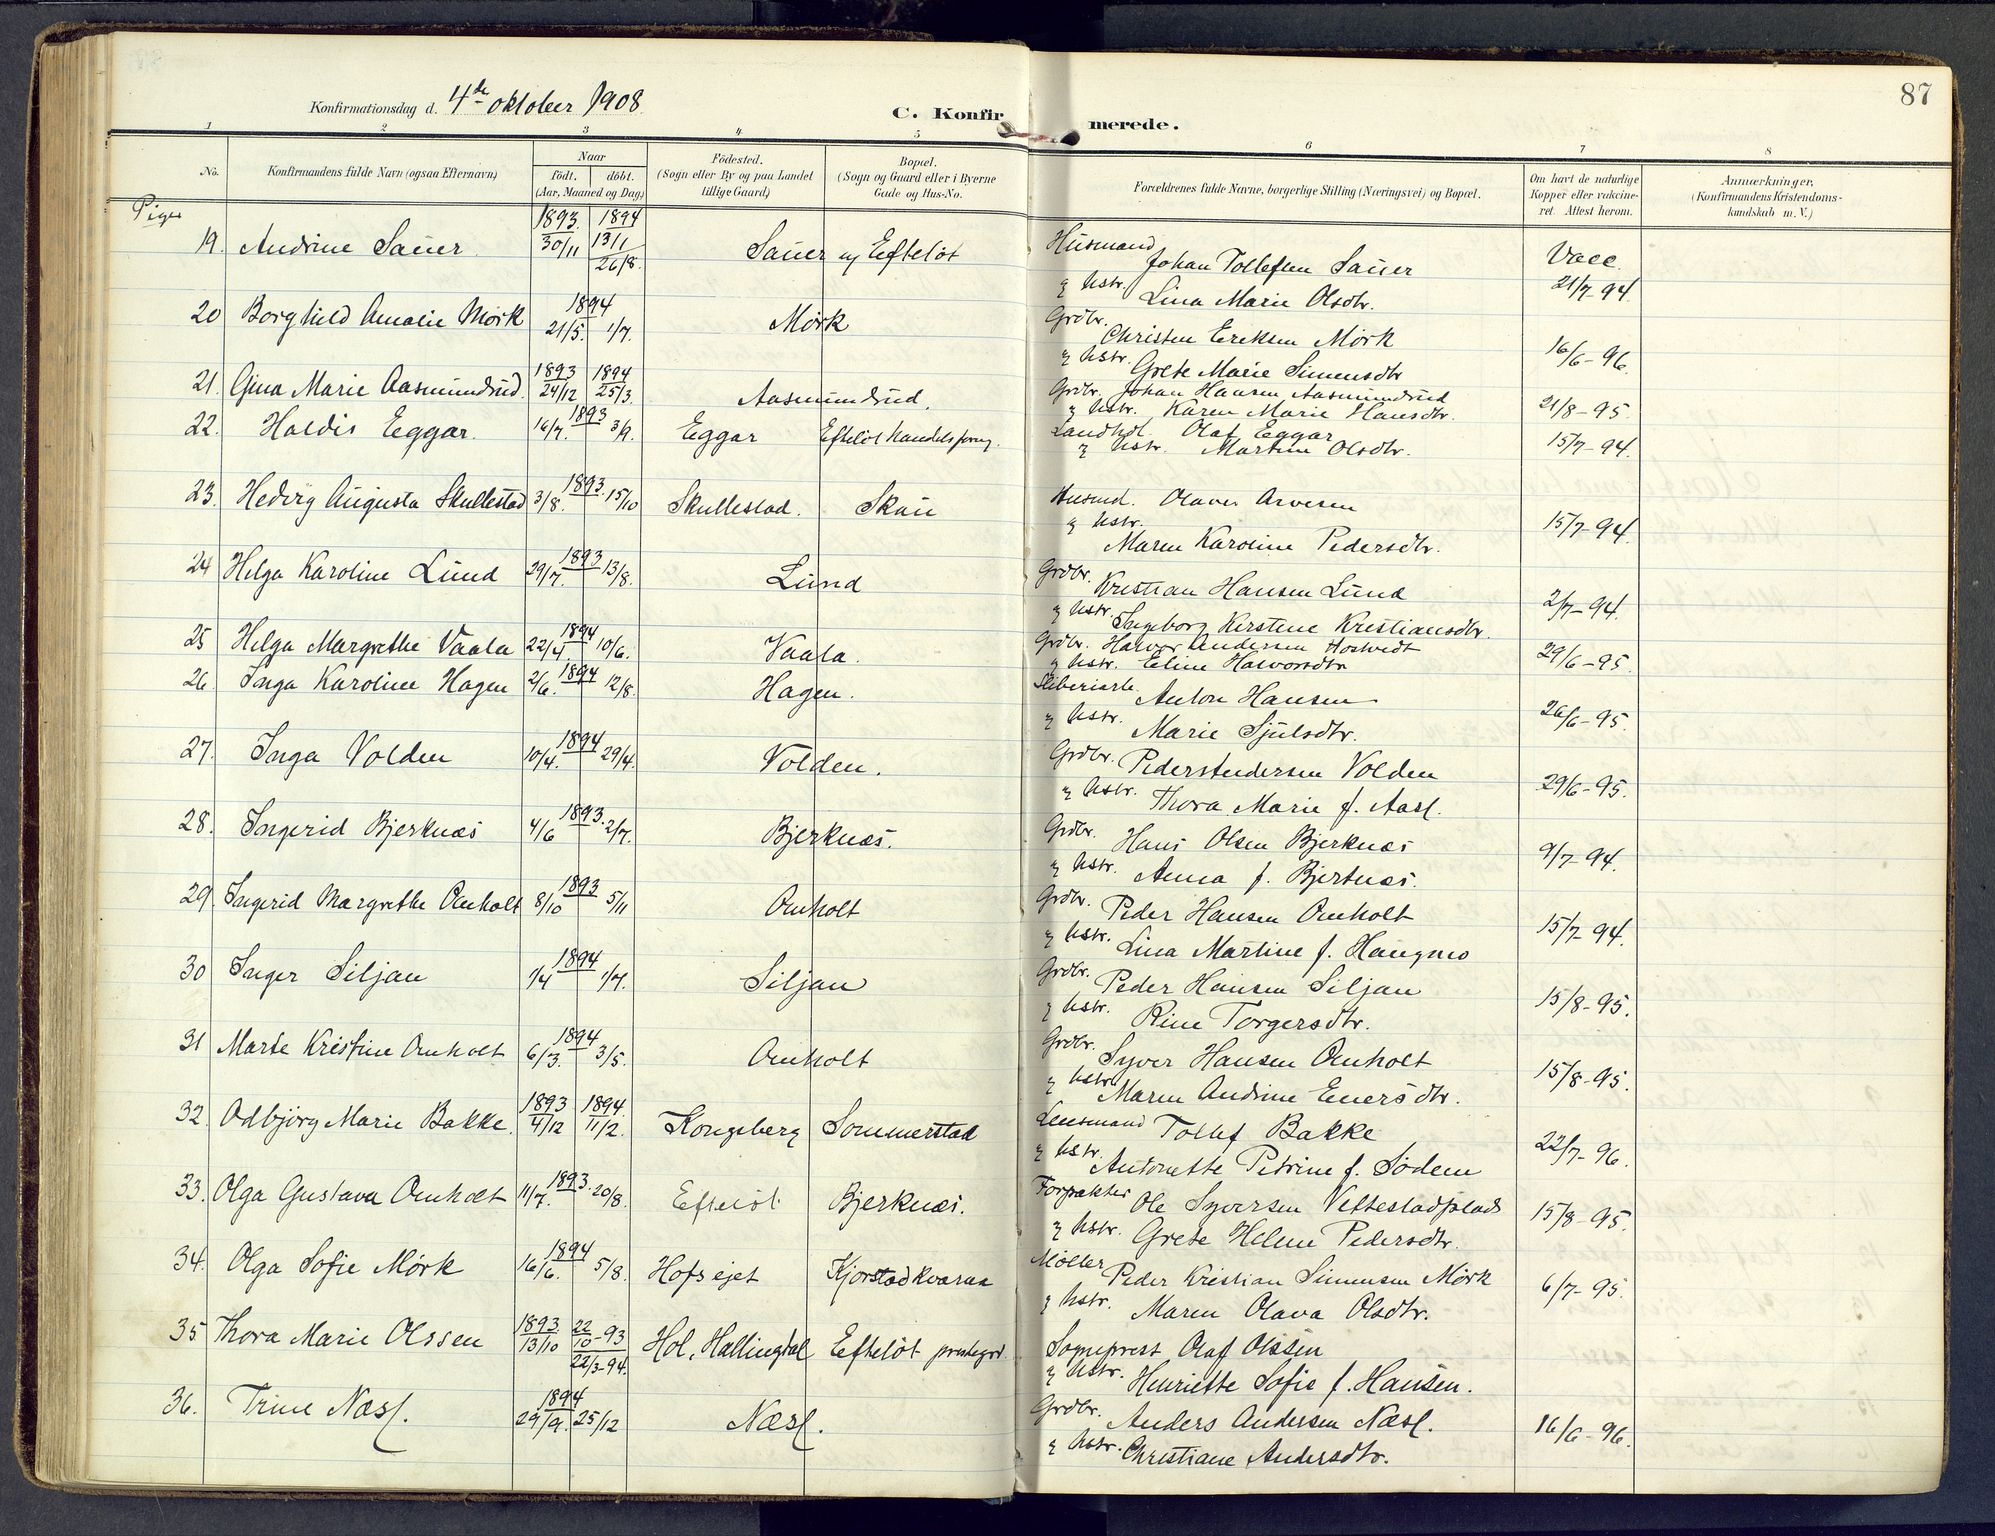 87
Konfirmationsdag d. 4de oktober 1908
C. Konfirmerede.
1 2 3 4 5 6 7 8
No. Konfirmandens fulde Navn (ogsaa Efternavn) Naar født. døbt. (Aar, Maaned og Dag) Födested. (Sogn eller By og paa Landet tillige Gaard) Bopæl. (Sogn og Gaard eller i Byerne Gade og Hus-No. Forældrenes fulde Navne, borgerlige Stilling (Næringsvei) og Bopæl. Om havt de naturlige Kopper eller vakcineret. Attest herom. Anmærkninger, (Konfirmandens Kristendomskundskab m. V.)
Piger
19. Andrine Sauer 1893 30/11 1894 13/1 26/8. Sauer Efteløt Husmand Johan Tollefsen Sauer Vacc.
og hstr. Lina Marie Olsdtr. 21/7-94.
20 Borghild Amalie Mørk 1894 21/5. 1/7. Mørk Grdbr. Christen Eriksen Mørk
og hstr. Grete Marie Simensdtr 16/6-96.
21. Gina Marie Aasmundrud. 1893 24/12 1894 25/3 Aasmundrud. Grdbr. Johan Hansen Aasmundrud
og hstr. Karen Marie Hansdtr. 21/8-95.
22. Haldis Eggar. 16/7. 1893 3/9. Eggar Efteløt Landhdl. Olaf Eggar
og hstr. Martine Olsdtr. 15/7-94.
23. Hedvig Augusta Skullestad 3/8. 1893. 15/10 Skullestad. Skau Husmd. Olaves Arvesen
og hstr. Maren Karoline Pedersdtr. 15/7-94.
24 Helga Karoline Lund 29/7. 1893 13/8. Lund Grdbr. Kristian Hansen Lund
og hstr. Ingeborg Kirstine Kristiansdtr. 2/7-94.
25 Helga Margrethe Vaala 22/4 1894 10/6. Vaala. Grdbr. Halvor Andersen Hostvedt
og hstr. Eline Halvorsdtr 29/6-95.
26. Inga Karoline Hagen 2/6. 1894 12/8. Hagen. Sliberiarb. Anton Hansen
og hstr. Marie Sjulsdtr. 26/6-95.
27. Inga Volden 10/4. 1894 29/4. Volden. Grdbr. Peder Andersen Volden
og hstr. Thora Marie f. Aasl. 29/6-95.
28. Ingerid Bjerknæs 4/6 1893. 2/7. Bjerknæs. Grdbr. Hans Olsen Bjerknæs
og hstr. Anna f. Bjerknæs. 9/7-94.
29. Ingerid Margrethe Omholt 8/10 1893 5/11 Omholt Grdbr. Peder Hansen Omholt
og hstr. Lina Martine f. Haugmo 15/7-94.
30 Inger Siljan 1/4 1894 1/7. Siljan Grdbr. Peder Hansen Siljan
og hstr. Rine Torgersdtr. 15/8-95.
31 Marte Kristine Omholt 6/3. 1894 3/5. Omholt Grdbr. Syver Hansen Omholt
og hstr. Maren Andrine Enersdtr. 15/8-95.
32. Odbjørg Marie Bakke. 1893 4/12 1894. 11/2. Kongsberg Sommerstad Lensmand Tollef Bakke
og hstr. Antonette Petrine f. Sødem 22/7-96.
33. Olga Gustava Omholt 11/7. 1893. 20/8. Efteløt Bjerknæs. Forpakter Ole Syversen Vettestadplads
og hstr. Grete Helene Pedersdtr. 15/8-95.
34. Olga Sofie Mørk 16/6. 1894 5/8. Hofsejet Kjørstadkværna Møller Peder Kristian Simensen Mørk
og hstr. Maren Olava Olsdtr. 6/7-95.
35 Thora Marie Olssen 1893 13/10 22/10-93 22/3-94. Hol, Hallingdal Efteløt prestegrd. Sogneprest Olaf Olssen
og hstr. Henriette Sofie f. Hansen.
36. Trine Næsl. 1894 29/9. 25/12 Næsl. Grdbr. Anders Andersen Næsl.
og hstr. Christiane Andersdtr. 16/6-96.